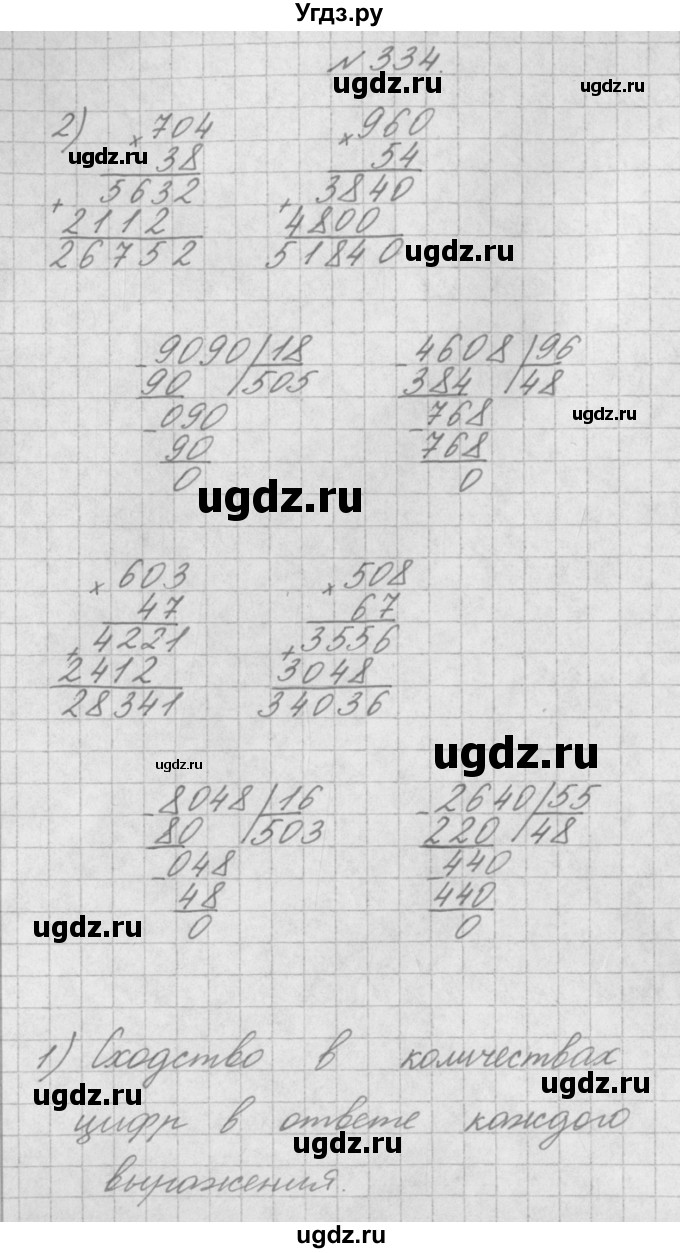 Угдз.ру
№ 334.
ugdz.ru ugdz.ru
2) × 704 × 960
ugdz.ru 38 54
5632 3840
+ 2112 + 4800
26752 51840 ugdz.ru
- 9090 | 18 - 4608 | 96
90 505 384 48
- 090 - 768 ugdz.ru
90 768
0 0
ugdz.ru
× 603 × 508
47 67
+ 4221 + 3556
2412 3048
28341 34036
ugdz.ru ugdz.ru
- 8048 | 16 - 2640 | 55
80 503 220 48
- 048 - 440
48 440
0 0
ugdz.ru
1) Сходство в количествах
ugdz.ru ugdz.ru
цифр в ответе каждого
ugdz.ru
выражения.
ugdz.ru